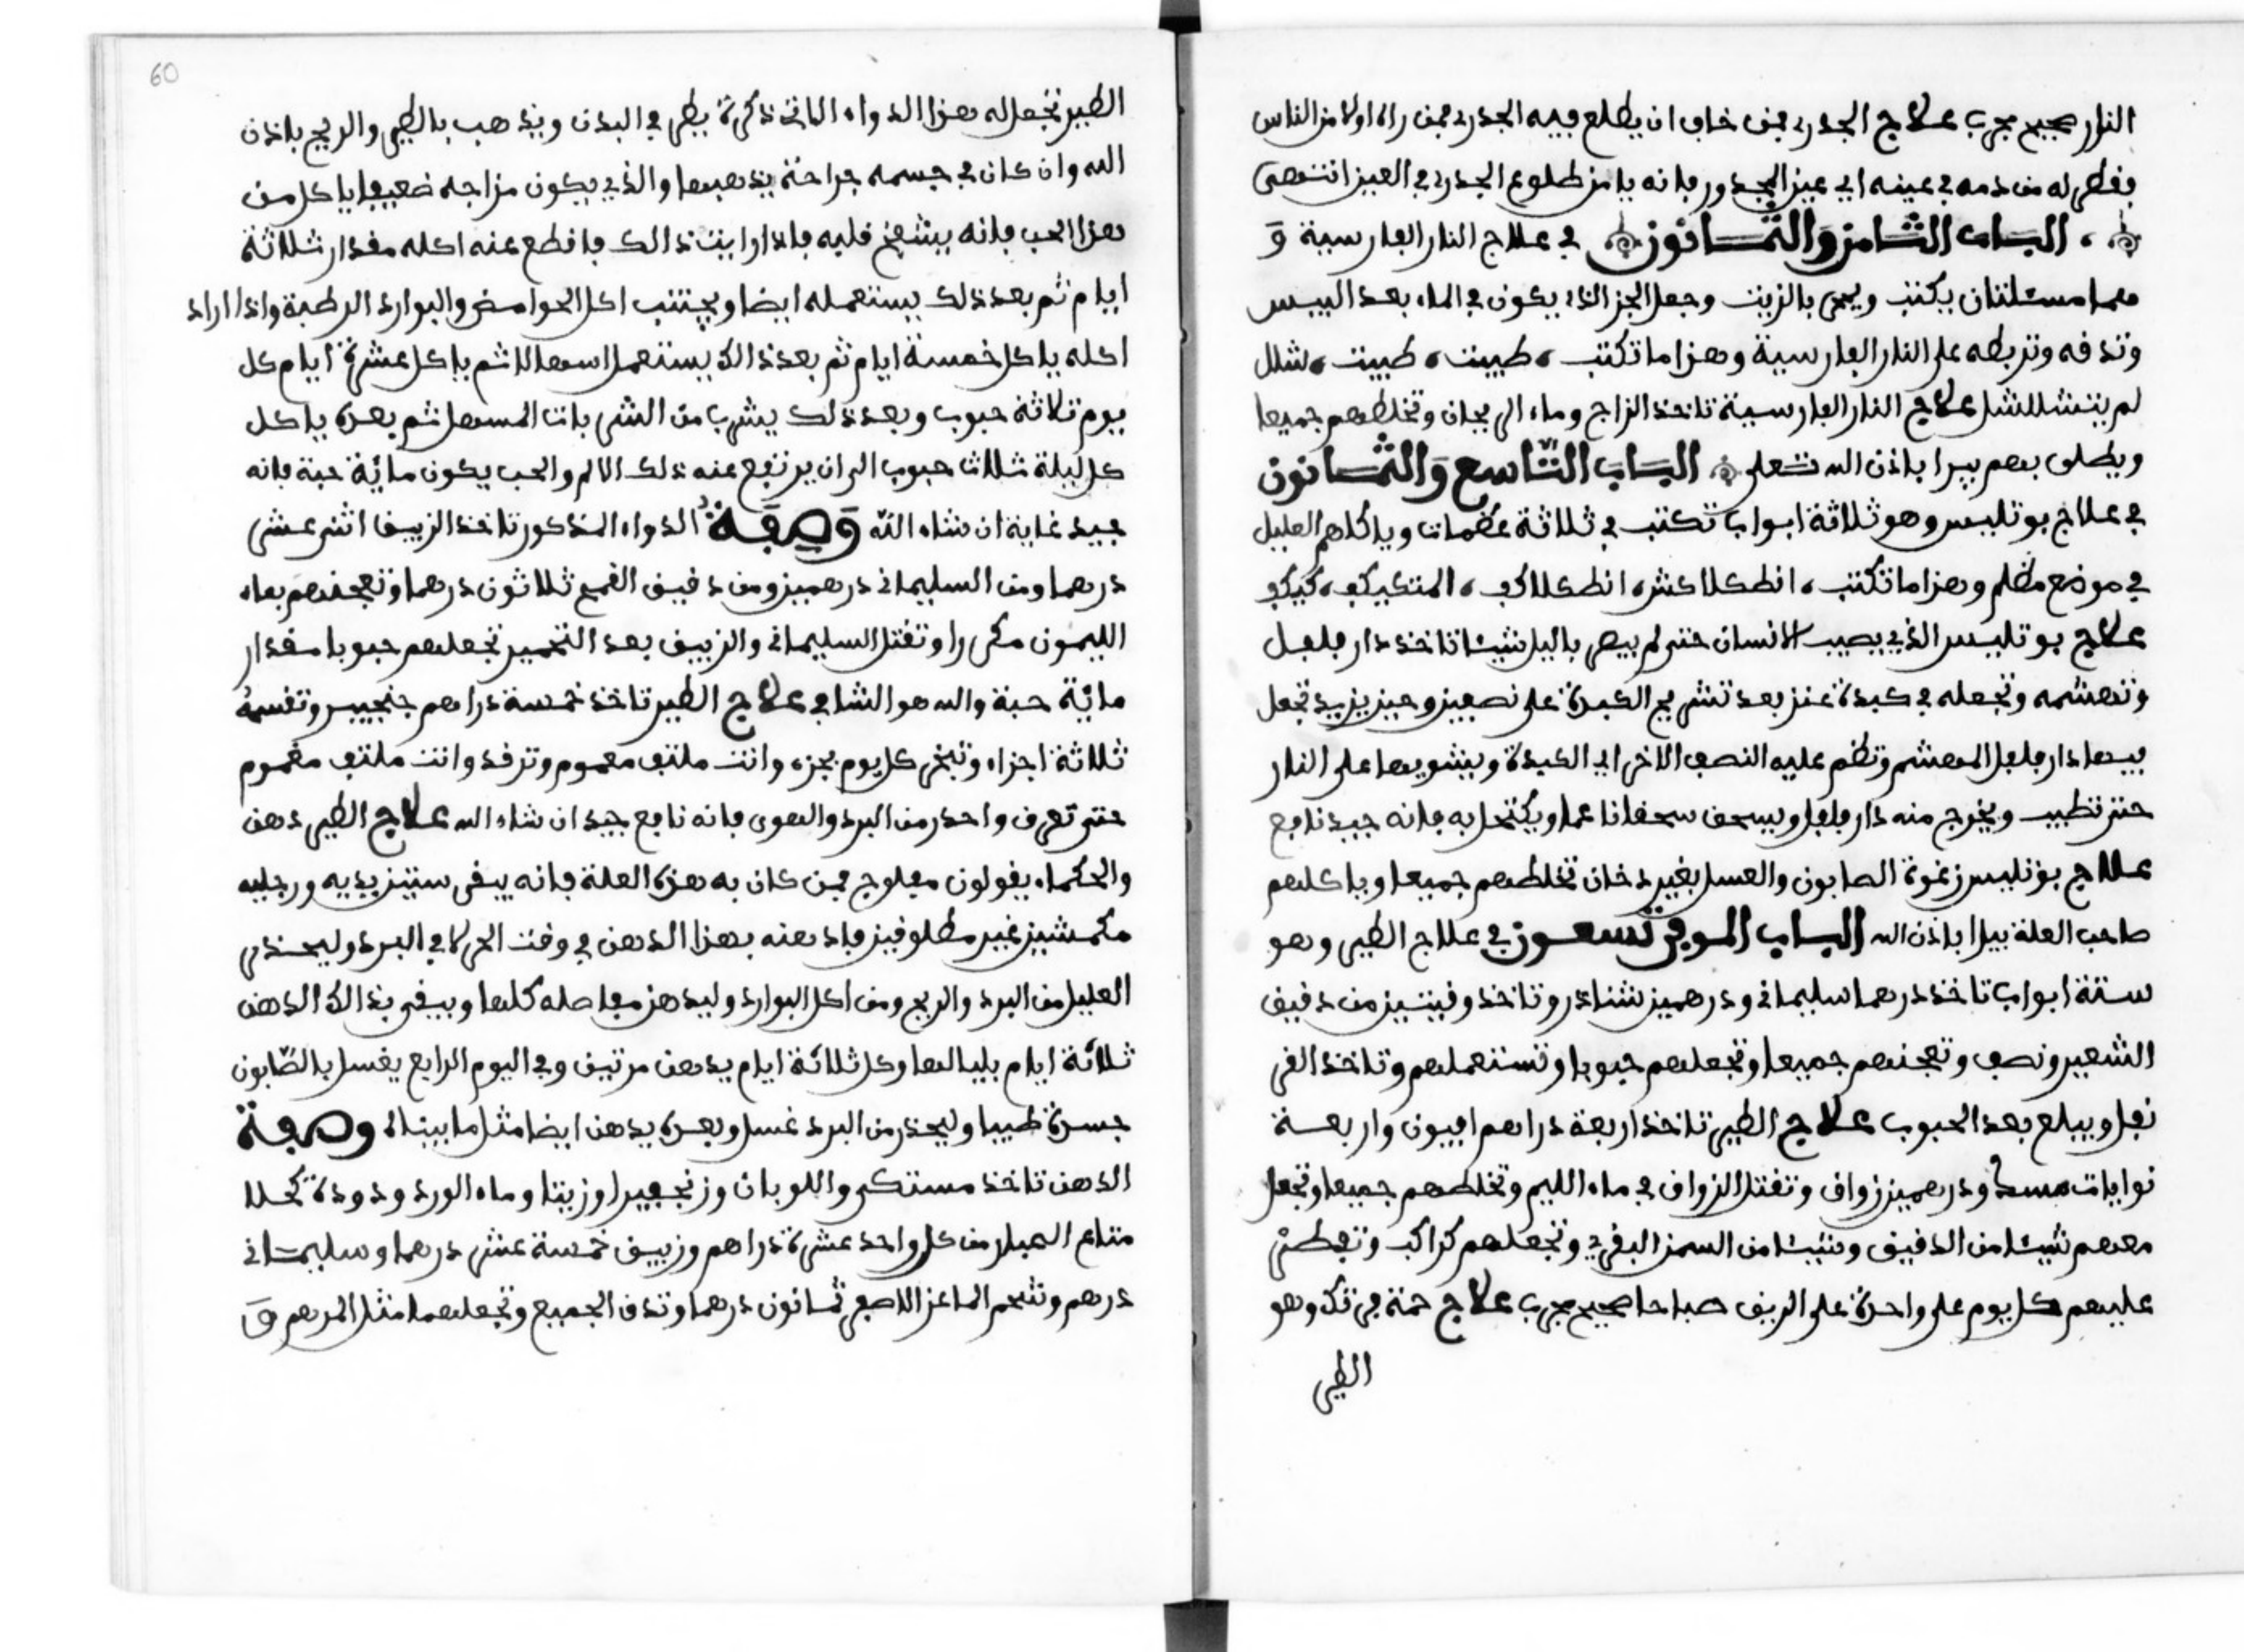 النار صحيح مجرب علاج الجدري فمن خاف ان يطلع فيه الجدري فمن راه اولا من الناس
يقطر له من دمه في عينه اي عين المجدور فانه يامن طلوع الجدري في العين انتهى
الباب الثامن والثمانون في علاج النار الفارسية و
فيها مسئلتان يكتب ويمحى بالزيت وجعل الخز الذي يكون في الماء بعد اليبس
وتدقه وتربطه على النار الفارسية وهذا ما تكتب طبيت طبيت شلل
لم يتشللشل علاج النار الفارسية تاخذ الزاج وماء الريحان وتخلطهم جميعا
ويطلى بهم يبرا باذن الله تعلى الباب التاسع والثمانون
في علاج بوتليس وهو ثلاثة ابواب تكتب في ثلاثة عظمات وياكلهم العليل
في موضع مظلم وهذا ما تكتب انطكلاكش انطكلاكف المتكيكف كيكف
علاج بوتليس الذي يصيب الانسان حتى لم يبصر باليل شيئا تاخذ دار فلفل
وتهشمه وتجعله في كبدة عنز بعد تشريح الكبدة على نصفين وحين يزيد تجعل
فيها دار فلفل المهشم وتظم عليه النصف الاخر اي الكبدة ويشويها على النار
حتى تطيب ويخرج منه دار فلفل ويسحق سحقا ناعما ويكتحل به فانه جيد نافع
علاج بوتليس رغوة الصابون والعسل بغير دخان تخلطهم جميعا وياكلهم
صاحب العلة يبرا باذن الله الباب الموفي تسعون في علاج الطير وهو
ستة ابواب تاخذ درهما سليماني ودرهمين شنادر وتاخذ وقيتين من دقيق
الشعير ونصف وتعجنهم جميعا وتجعلهم حبوبا وتستعملهم وتاخذ القر
نفل ويبلع بعد الحبوب علاج الطير تاخذ اربعة دراهم افيون واربعة
نوايات ودرهمين زواق وتقتل الزواق في ماء الليم وتخلطهم جميعا وتجعل
معهم شيئا من الدقيق وشيئا من السمن البقري وتجعلهم كراكب وتفطر
عليهم كل يوم على واحدة على الريق صباحا صحيح مجرب علاج وهو
الطير
60
الطير تجعل له هذا الدواء الاتي ذكره يطر في البدن ويذهب بالطير والريح باذن
الله وان كان في جسمه جراحة يذهبها والذي يكون مزاجه ضعيفا ياكل من
هذا الحب فانه ينتفخ قلبه فاذا رايت ذالك فاقطع عنه اكله مقدار ثلاثة
ايام ثم بعد ذلك يستعمله ايضا ويجتنب اكل الحوامض والبوارد الرطبة واذا اراد
اكله ياكل خمسة ايام ثم بعد ذالك يستعمل اسهالا ثم ياكل عشرة ايام كل
يوم ثلاثة حبوب وبعد ذلك يشرب من الشربات المسهل ثم بعده ياكل
كل ليلة ثلاث حبوب الى ان يرتفع عنه ذلك الالم والحب يكون مائة حبة فانه
جيد غاية ان شاء الله وصفة الدواء المذكور تاخذ الزيبق اثنى عشر
درهما ومن السليماني درهمين ومن دقيق القمح ثلاثون درهما وتعجنهم بماء
الليمون مكررا وتقتل السليماني والزيبق بعد التخمير تجعلهم حبوبا مقدار
مائة حبة والله هو الشافي علاج الطير تاخذ خمسة دراهم جنجبير وتقسمه
ثلاثة اجزاء وتبخر كل يوم بجزء وانت ملتف مغموم وترقد وانت ملتف مغموم
حتى تعرق واحذر من البرد والهوى فانه نافع جيد ان شاء الله علاج الطير دهن
والحكماء يقولون مفلوج فمن كان به هذه العلة فانه يبقى سنين يديه ورجليه
مكمشين غير مطلوقين فادهنه بهذا الدهن في وقت الحر لا في البرد وليحذر
العليل من البرد والريح ومن اكل البوارد وليدهن مفاصله كلها ويبقى بذالك الدهن
ثلاثة ايام بلياليها وكل ثلاثة ايام يدهن مرتين وفي اليوم الرابع يغسل بالصابون
جسده طيبا وليحذر من البرد غسل وبعده يدهن ايضا مثل ما بيناه وصفة
الدهن تاخذ مستكى واللوبان وزنجبيرا وزيتا وماء الورد ودودة كحلا
متاع من كل واحد عشرة دراهم وزيبق خمسة عشر درهما وسليماني
درهم وشحم الماعز الاصفر ثمانون درهما وتدق الجميع وتجعلهما مثل المرهم و